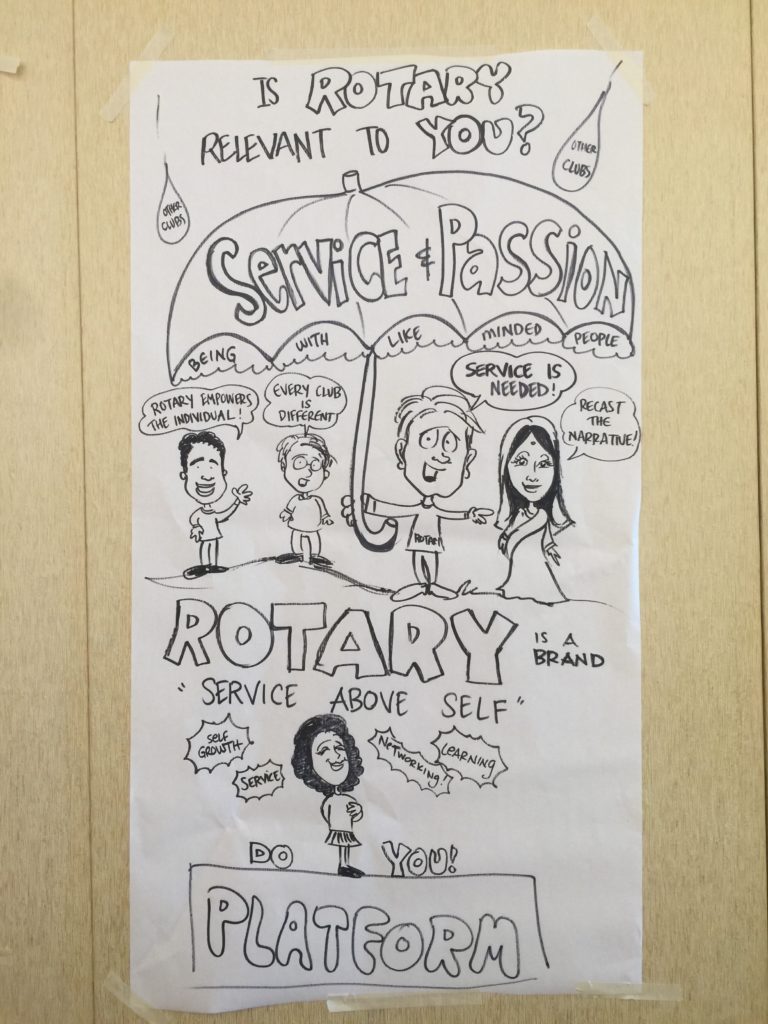 IS ROTARY
RELEVANT TO YOU?
OTHER
CLUBS
OTHER
CLUBS
SERVICE & PASSION
BEING WITH LIKE MINDED PEOPLE
ROTARY EMPOWERS
THE INDIVIDUAL!
EVERY CLUB
IS
DIFFERENT
SERVICE IS
NEEDED!
RECAST
THE
NARRATIVE!
ROTARY
ROTARY IS A
BRAND
"SERVICE ABOVE SELF"
SELF
GROWTH
SERVICE
NETWORKING!
LEARNING
DO YOU!
PLATFORM